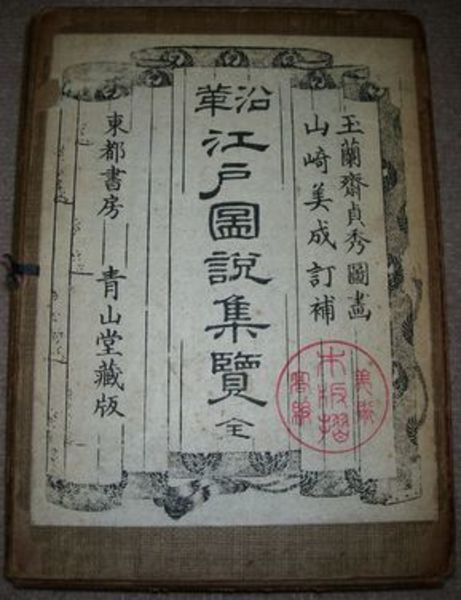 玉蘭齋貞秀圖畫
山崎美成訂補
沿革
江戸圖説集覽全
東都書房 青山堂藏版
木版摺